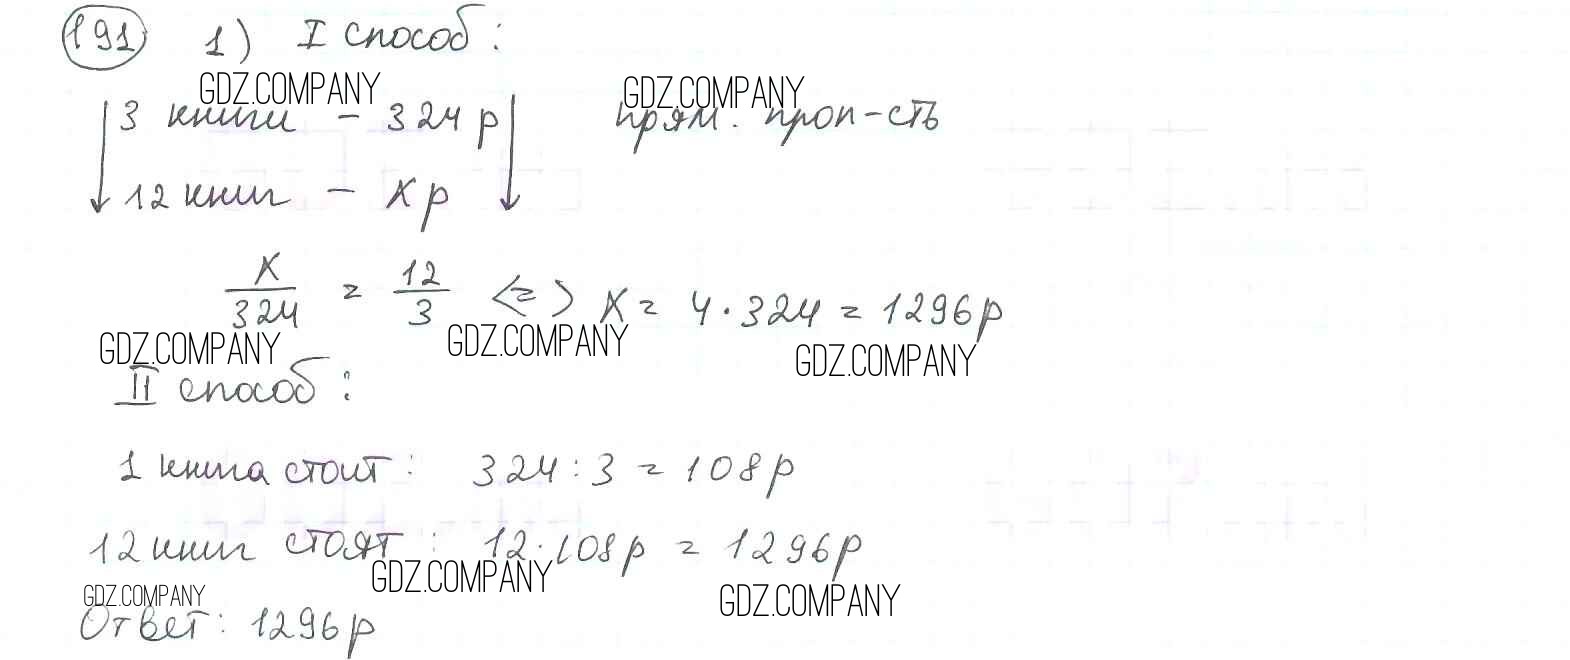 191 1) I способ:
GDZ.COMPANY GDZ.COMPANY
3 книги - 324 р прям. проп-сть
12 книг - x р
x/324 = 12/3 <=> x = 4·324 = 1296р
GDZ.COMPANY GDZ.COMPANY GDZ.COMPANY
II способ:
1 книга стоит: 324:3 = 108р
12 книг стоят: 12·108р = 1296р
GDZ.COMPANY GDZ.COMPANY GDZ.COMPANY
Ответ: 1296р